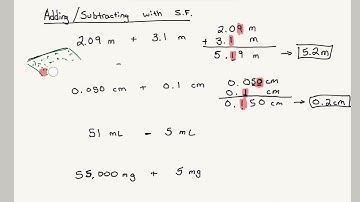 Adding/Subtracting with S.F.
2.09 m + 3.1 m
2.09 m
+ 3.1 m
5.19 m → 5.2 m
0.050 cm + 0.1 cm
0.050
0.1 cm
0.150 cm → 0.2 cm
51 mL - 5 mL
55,000 mg + 5 mg